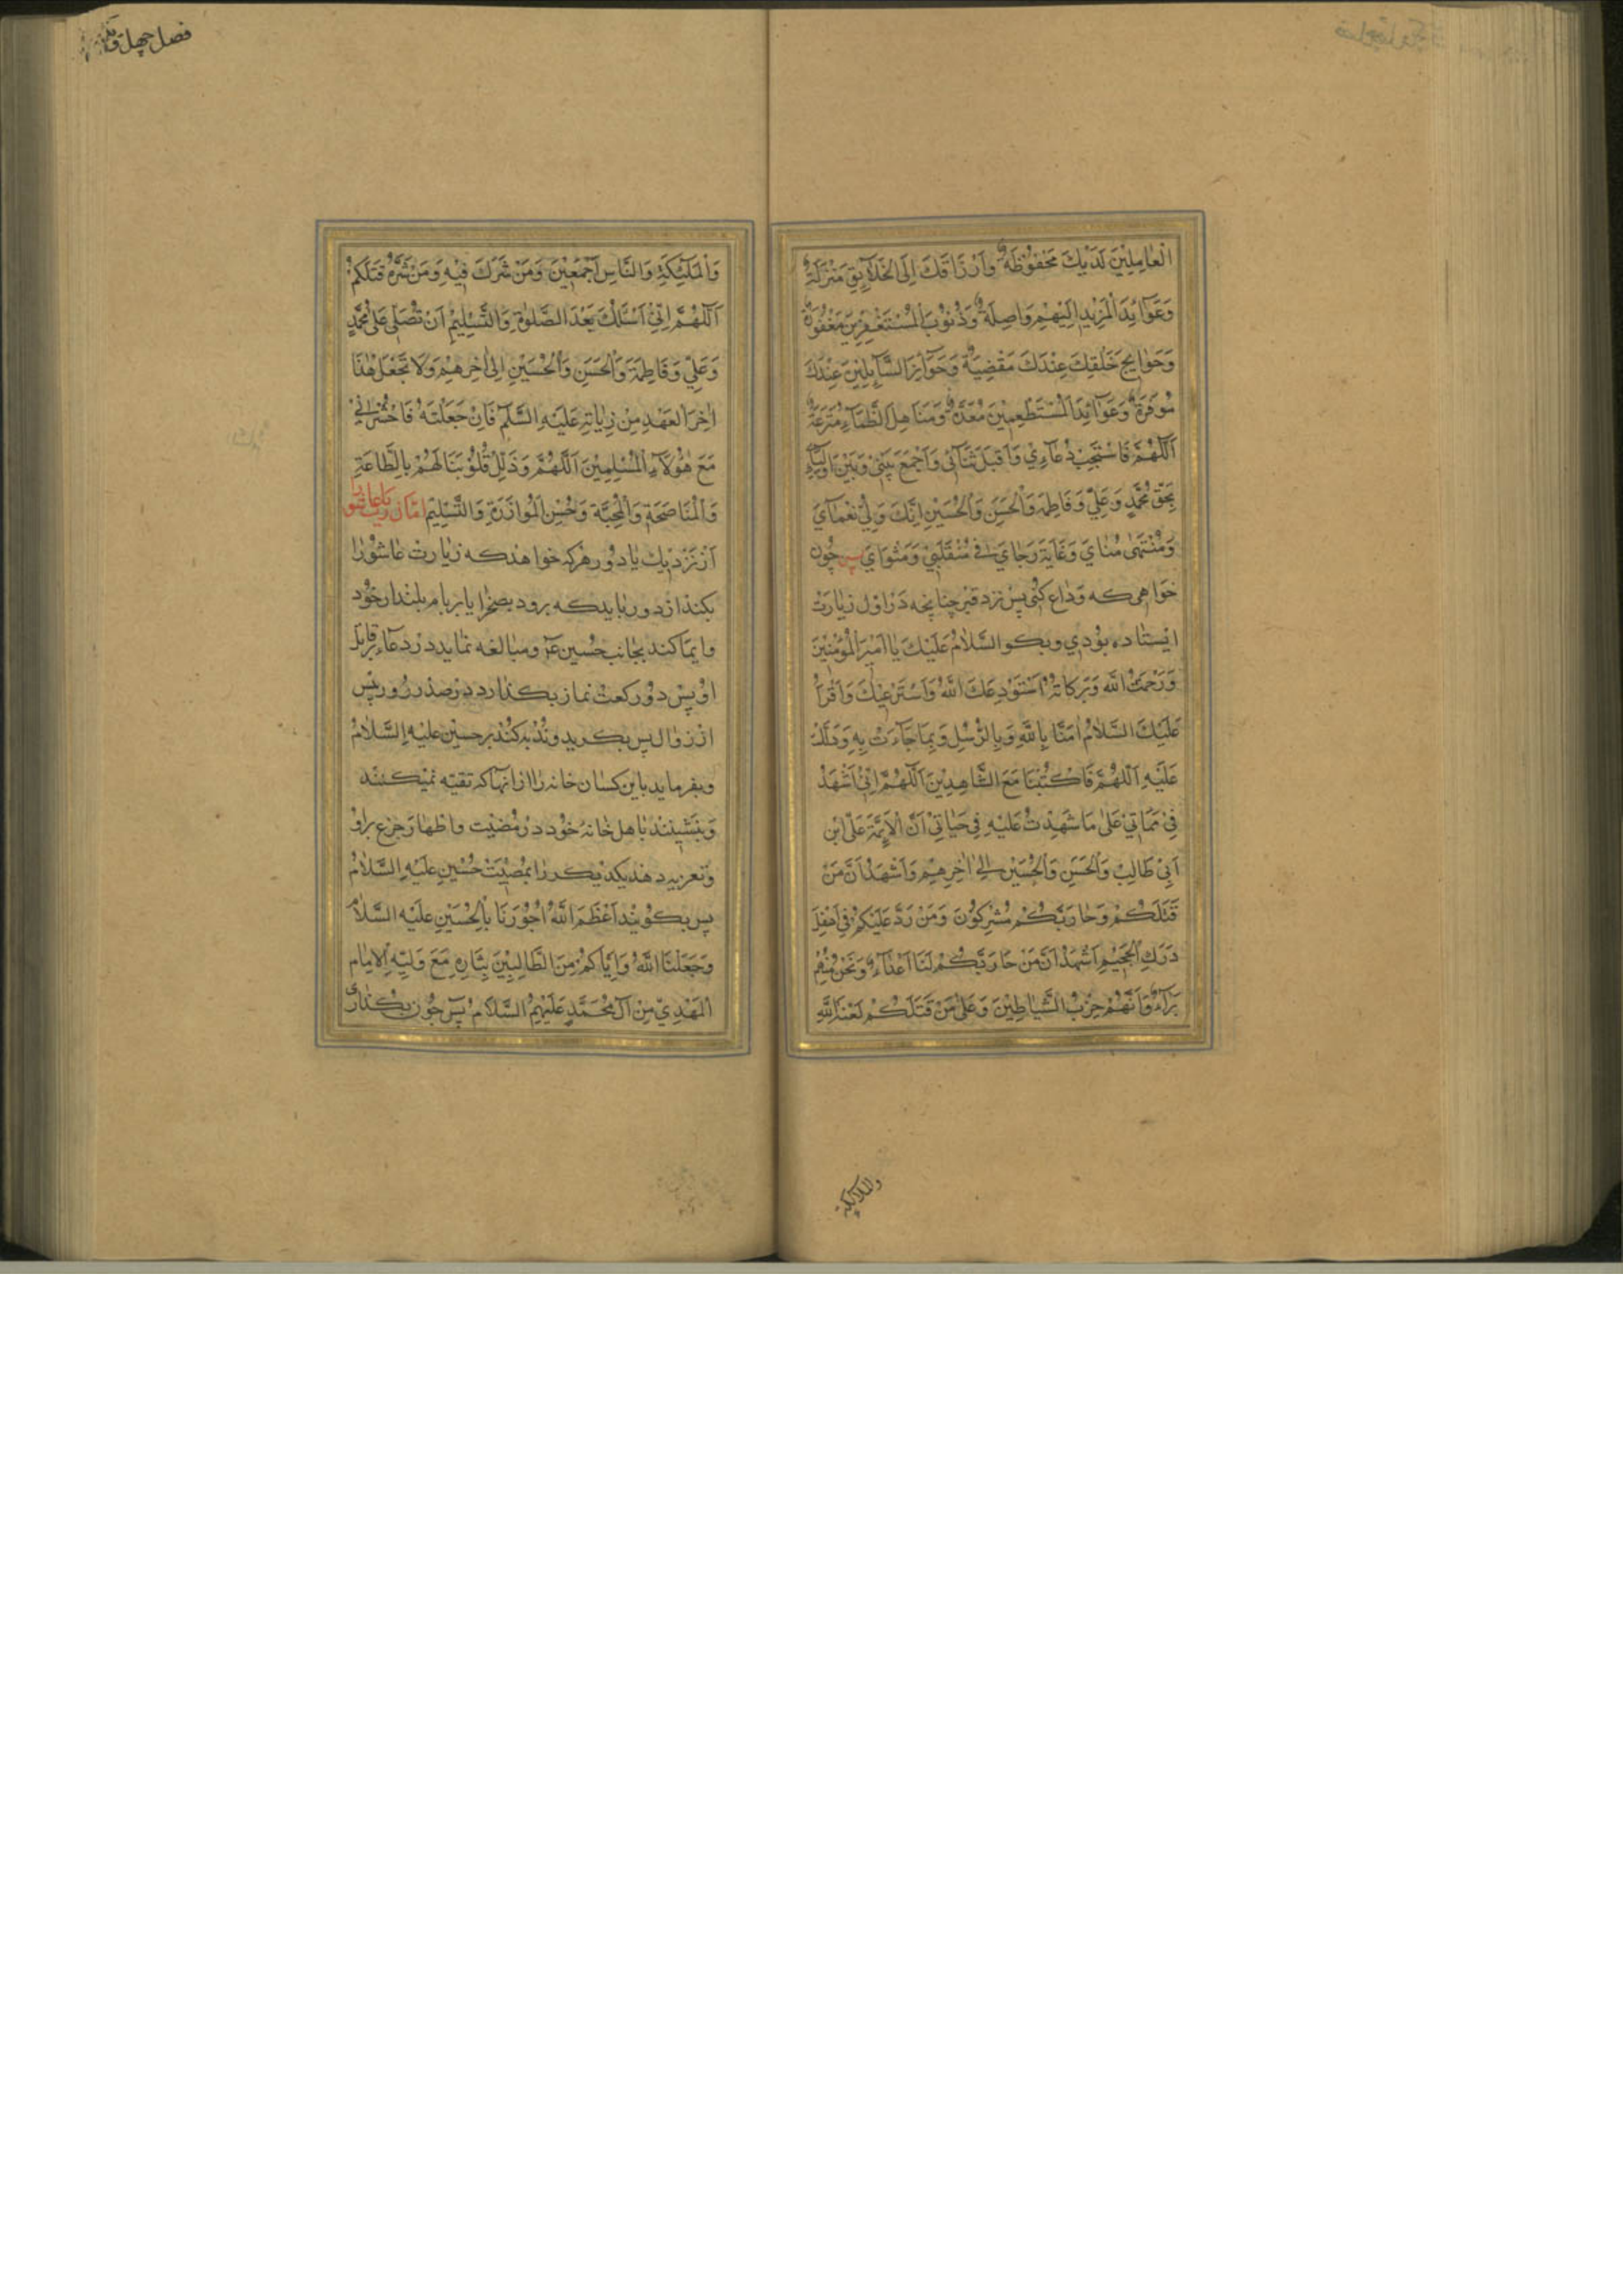 الْعٰامِلِيْنَ لَدَيْكَ مَحْفُوْظَةٌ وَاَرْزَاقَكَ اِلَى الْخَلَآيِقِ مَنْزَلَةٌ
وَعَوٰآئِدَ الْمَزِيْدِ اِلَيْهِمْ وَاصِلَةٌ وَذُنُوْبَ الْمُسْتَغْفِرِيْنَ مَغْفُوْرَةٌ
وَحَوٰايِجَ خَلْقِكَ عِنْدَكَ مَقْضِيَةٌ وَجَوٰآئِزَ السَّآئِلِيْنَ عِنْدَكَ
مُوَفَرَةٌ وَعَوٰآئِدَ الْمُسْتَطْعِمِيْنَ مُعَدَّةٌ وَمَنَاهِلَ الظَّمَآءِ مُتْرَعَةٌ
اَللّٰهُمَّ فَاسْتَجِبْ دُعَآءِيْ وَاَقْبِلْ ثَنَآئِي وَاَجْمَعْ بَيْنِيْ وَبَيْنَ اَوْلِيَآءِ
بِحَقِّ مُحَمَّدٍ وَعَلِيٍّ وَفَاطِمَةَ وَالْحَسَنِ وَالْحُسَيْنِ اِنَّكَ وَلِيُّ نَعْمَآئِي
وَمُنْتَهٰى مُنٰايَ وَغَايَةَ رَجٰايَ فِي مُنْقَلَبِيْ وَمَثْوٰايَ پس چُون
خَوٰاهى كه وَدٰاع كنى پس نزد قبر چنانچه دَر اوّل زيٰارت
ايستٰاده بُودي وبكو السَّلاٰمُ عَلَيْكَ يٰا اَمِيْرَ الْمُؤْمِنِيْنَ
وَرَحْمَتُ اللّٰهِ وَبَرَكَاتُهُ اَسْتَوْدِعُكَ اللّٰهَ وَاَسْتَرْعِيْكَ وَاَقْرَأُ
عَلَيْكَ السَّلاٰمُ اٰمَنَّا بِاللّٰهِ وَبِالرُّسُلِ وَبِمَا جَآءَتْ بِهِ وَدَلَّتْ
عَلَيْهِ اَللّٰهُمَّ فَاكْتُبْنَا مَعَ الشَّاهِدِيْنَ اَللّٰهُمَّ اِنِّيْ اَشْهَدُ
فِيْ مَمَاتِيْ عَلٰى مَا شَهِدْتُ عَلَيْهِ فِيْ حَيٰاتِيْ اَنَّ الْاَئِمَّةَ عَلَى ابْن
اَبِيْ طَالِبْ وَالْحَسَنِ وَالْحُسَيْنِ اِلٰى اٰخِرِهِمْ وَاَشْهَدُ اَنَّ مَنْ
قَتَلَكُمْ وَحٰارَبَكُمْ مُشْرِكُوْنَ وَمَنْ رَدَّ عَلَيْكُمْ فِيْ اَسْفَلِ
دَرَكِ الْجَحِيْمِ اَشْهَدُ اَنَّ مَنْ حَارَبَكُمْ لَنَا اَعْدَآءٌ وَنَحْنُ مِنْهُمْ
بَرَآءٌ وَاَنَّهُمْ حِزْبُ الشَّيٰاطِيْنَ وَعَلٰى مَنْ قَتَلَكُمْ لَعْنَةُ اللّٰهِ
والملائكة
فصل چهل و
وَالْمَلٰئِكَةِ وَالنَّاسِ اَجْمَعِيْنَ وَمَنْ شَرَكَ فِيْهِ وَمَنْ سَرَّهُ قَتْلَكُمْ
اَللّٰهُمَّ اِنِّيْ اَسْئَلُكَ بَعْدَ الصَّلوٰةِ وَالتَّسْلِيْمِ اَنْ تُصَلِّيَ عَلٰى مُحَمَّدٍ
وَعَلِيٍّ وَفَاطِمَةَ وَالْحَسَنِ وَالْحُسَيْنِ اِلٰى اٰخِرِهِمْ وَلَا تَجْعَلْ هٰذَا
اٰخِرَ الْعَهْدِ مِنْ زِيٰارَتِهِ عَلَيْهِ السَّلَمْ فَاِنْ جَعَلْتَهُ فَاحْشُرْنِيْ
مَعَ هٰؤُلَآءِ الْمُسْلِمِيْنَ اَللّٰهُمَّ وَذَلِّلْ قُلُوْبَنَا لَهُمْ بِالطَّاعَةِ
وَالْمُنَاصَحَةِ وَالْمَحَبَّةِ وَحُسْنِ الْمُوَازَرَةِ وَالتَّسْلِيْم امّا زيارت عاشورا
از نزديك يا دُور هركه خواهد كه زيٰارت عٰاشُورٰا
بكند از دور بٰايد كه برود بصحْرا يا بر بام بلند از خُود
وايمٰا كند بجٰانب حُسين عم ومبٰالغه نمٰايد در دعآء بر قاتل
او پس دُو ركعت نماز بكذارد در صدر رُوز پيش
از زوٰال پس بكريد وندُبه كُند بر حسين عليه السَّلاٰمُ
وبفرمايد باين كسٰان خانه رٰا از انها كه تقيّه نميكنند
وبنشينند بٰا هل خٰانهٔ خُود در مُصيْبت واظهٰار جزع براُو
وتعزيه دهند يكديكر رٰا بمُصيْبَتْ حُسَيْن عليْهِ السَّلاٰمُ
پس بكويُند اَعْظَمَ اللّٰهُ اُجُوْرَنَا بِالْحُسَيْنِ عَلَيْهِ السَّلاٰمُ
وَجَعَلْنَا اللّٰهُ وَاِيَّاكُمْ مِنَ الطَّالِبِيْنَ بِثَارِهِ مَعَ وَلِيِّهِ الْاِمٰامِ
الْمَهْدِيِّ مِنْ اٰلِ مُحَمَّدٍ عَلَيْهِمُ السَّلاٰمُ پس چُون بكذارى